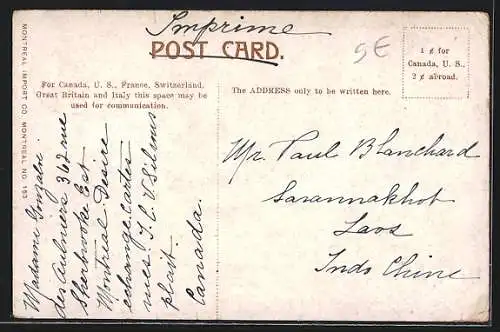 Imprimé
POST CARD.
5€
1 ¢ for
Canada, U. S.,
2 ¢ abroad.
For Canada, U. S., France, Switzerland,
Great Britain and Italy this space may be
used for communication.
The ADDRESS only to be written here.
MONTREAL IMPORT CO. MONTREAL NO 153
Madame Gonzalve
des Aulniers 362 rue
Sherbrooke Est
Montreal. Desire
echange. cartes
vues. S.
plait.
Canada.
Mr. Paul Blanchard
Savannakhet
Laos
Indo Chine